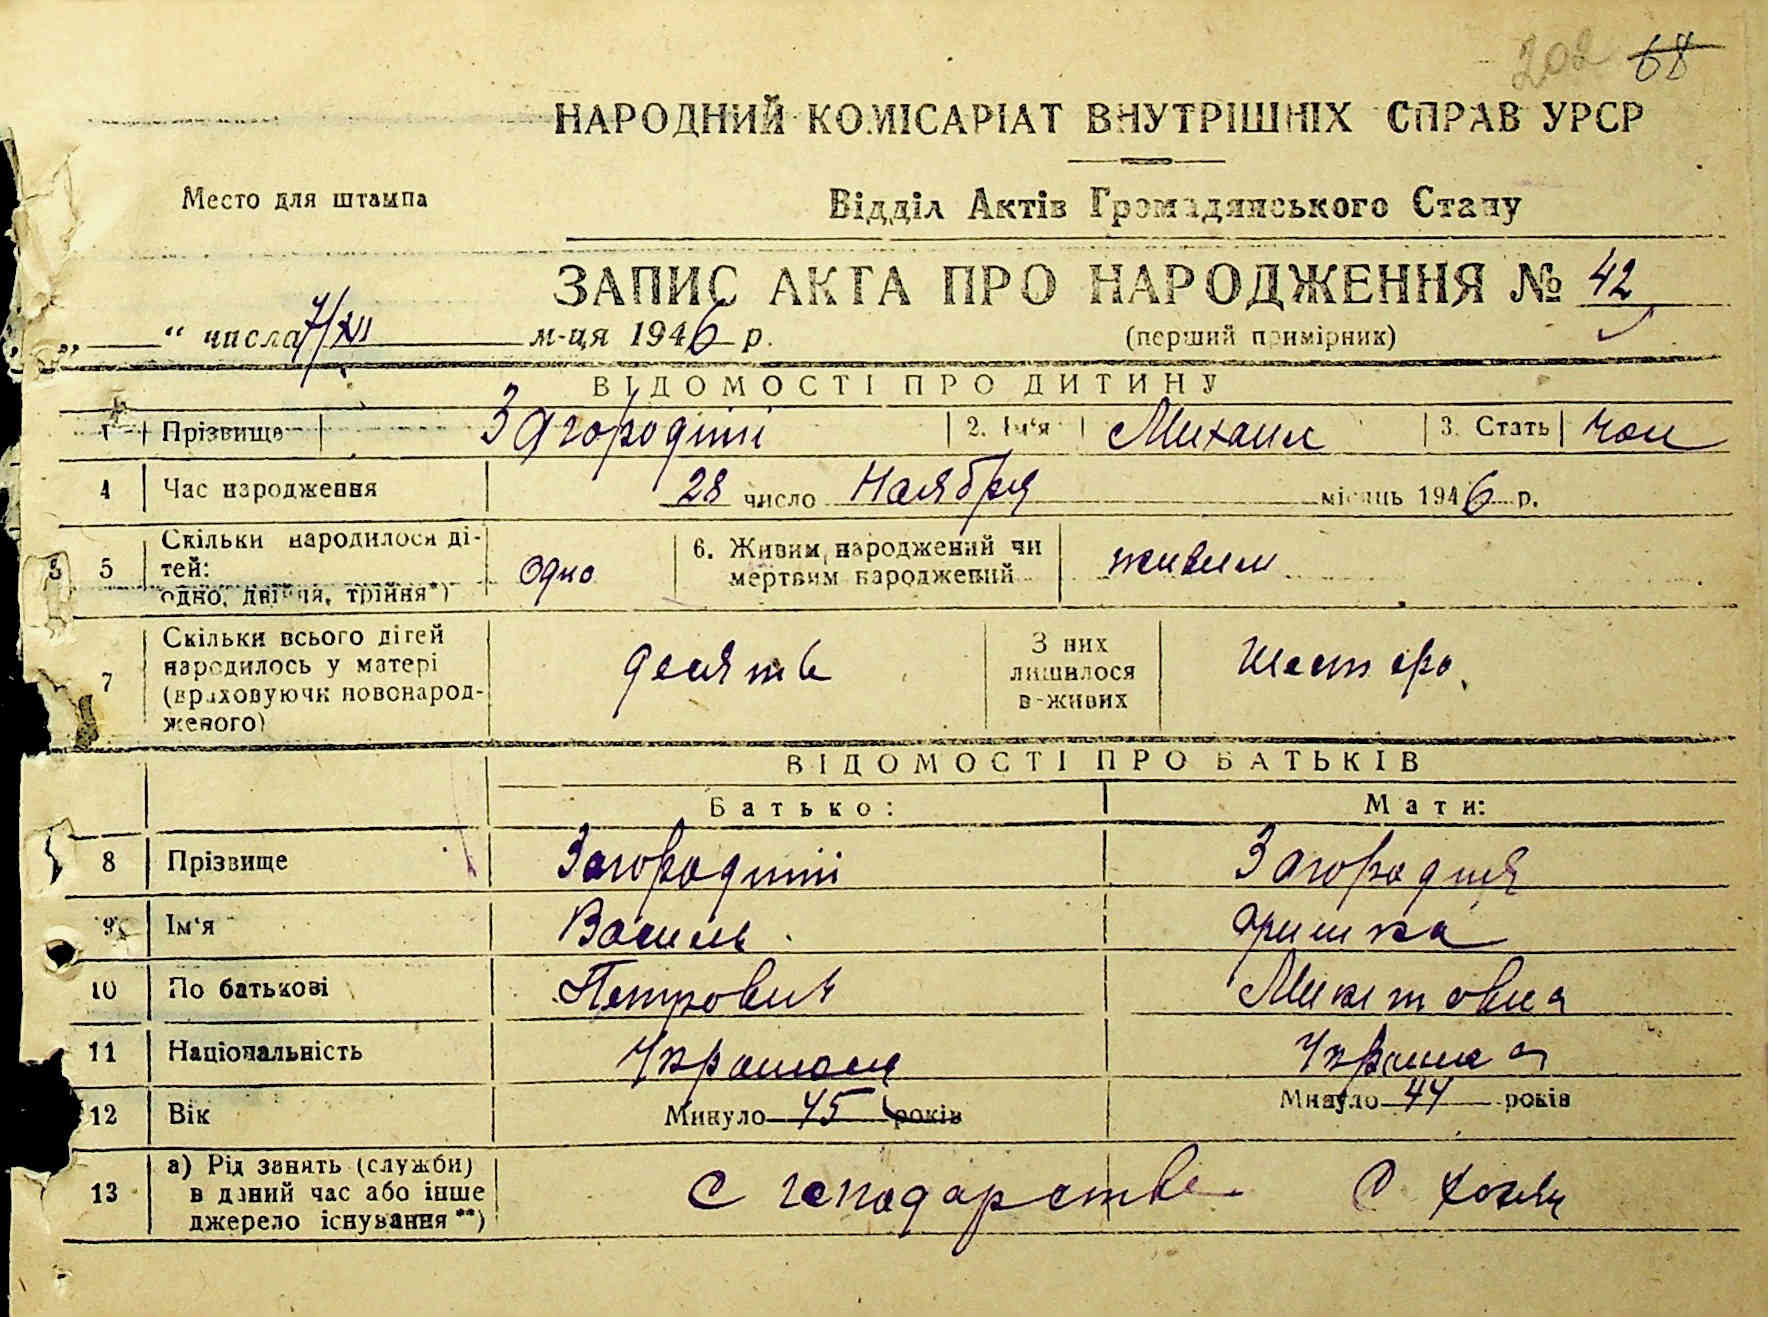 202 68
НАРОДНИЙ КОМІСАРІАТ ВНУТРІШНІХ СПРАВ УРСР
Место для штампа
Відділ Актів Громадянського Стану
ЗАПИС АКТА ПРО НАРОДЖЕННЯ № 42
„ “ числа 7/XII м-ця 1946 р.
(перший примірник)
ВІДОМОСТІ ПРО ДИТИНУ
1 Прізвище Загородній 2. Ім‘я Михаил 3. Стать чол
4 Час народження 28 число Ноября місяць 1946 р.
5 Скільки народилося ді-
тей:
одно, двійня, трійня*) одно
6. Живим народжений чи
мертвим народжений живим
7 Скільки всього дітей
народилось у матері
(враховуючи новонарод-
женого) десять
З них
лишилося
в-живих шестеро
ВІДОМОСТІ ПРО БАТЬКІВ
Батько: Мати:
8 Прізвище Загородній Загородня
9 Ім‘я Василь Оришка
10 По батькові Петрович Микитовна
11 Національність Украінец Украинка
12 Вік Минуло 45 років Минуло 44 років
13 а) Рід занять (служби)
в даний час або інше
джерело існування**) С господарстве С хозяй